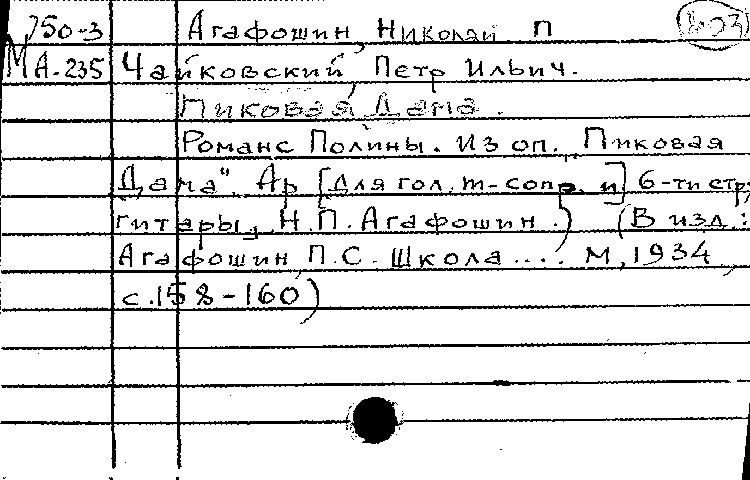 750-3 Агафошин, Николай П
МА-235 Чайковский, Петр Ильич.
Пиковая Дама.
Романс Полины. Из оп. „Пиковая
Дама". Ар [для гол. m-сопр. и] 6-ти стр,
гитары, Н.П. Агафошин.) (В изд.:
Агафошин, П.С. Школа .... М, 1934,
с. 158-160)